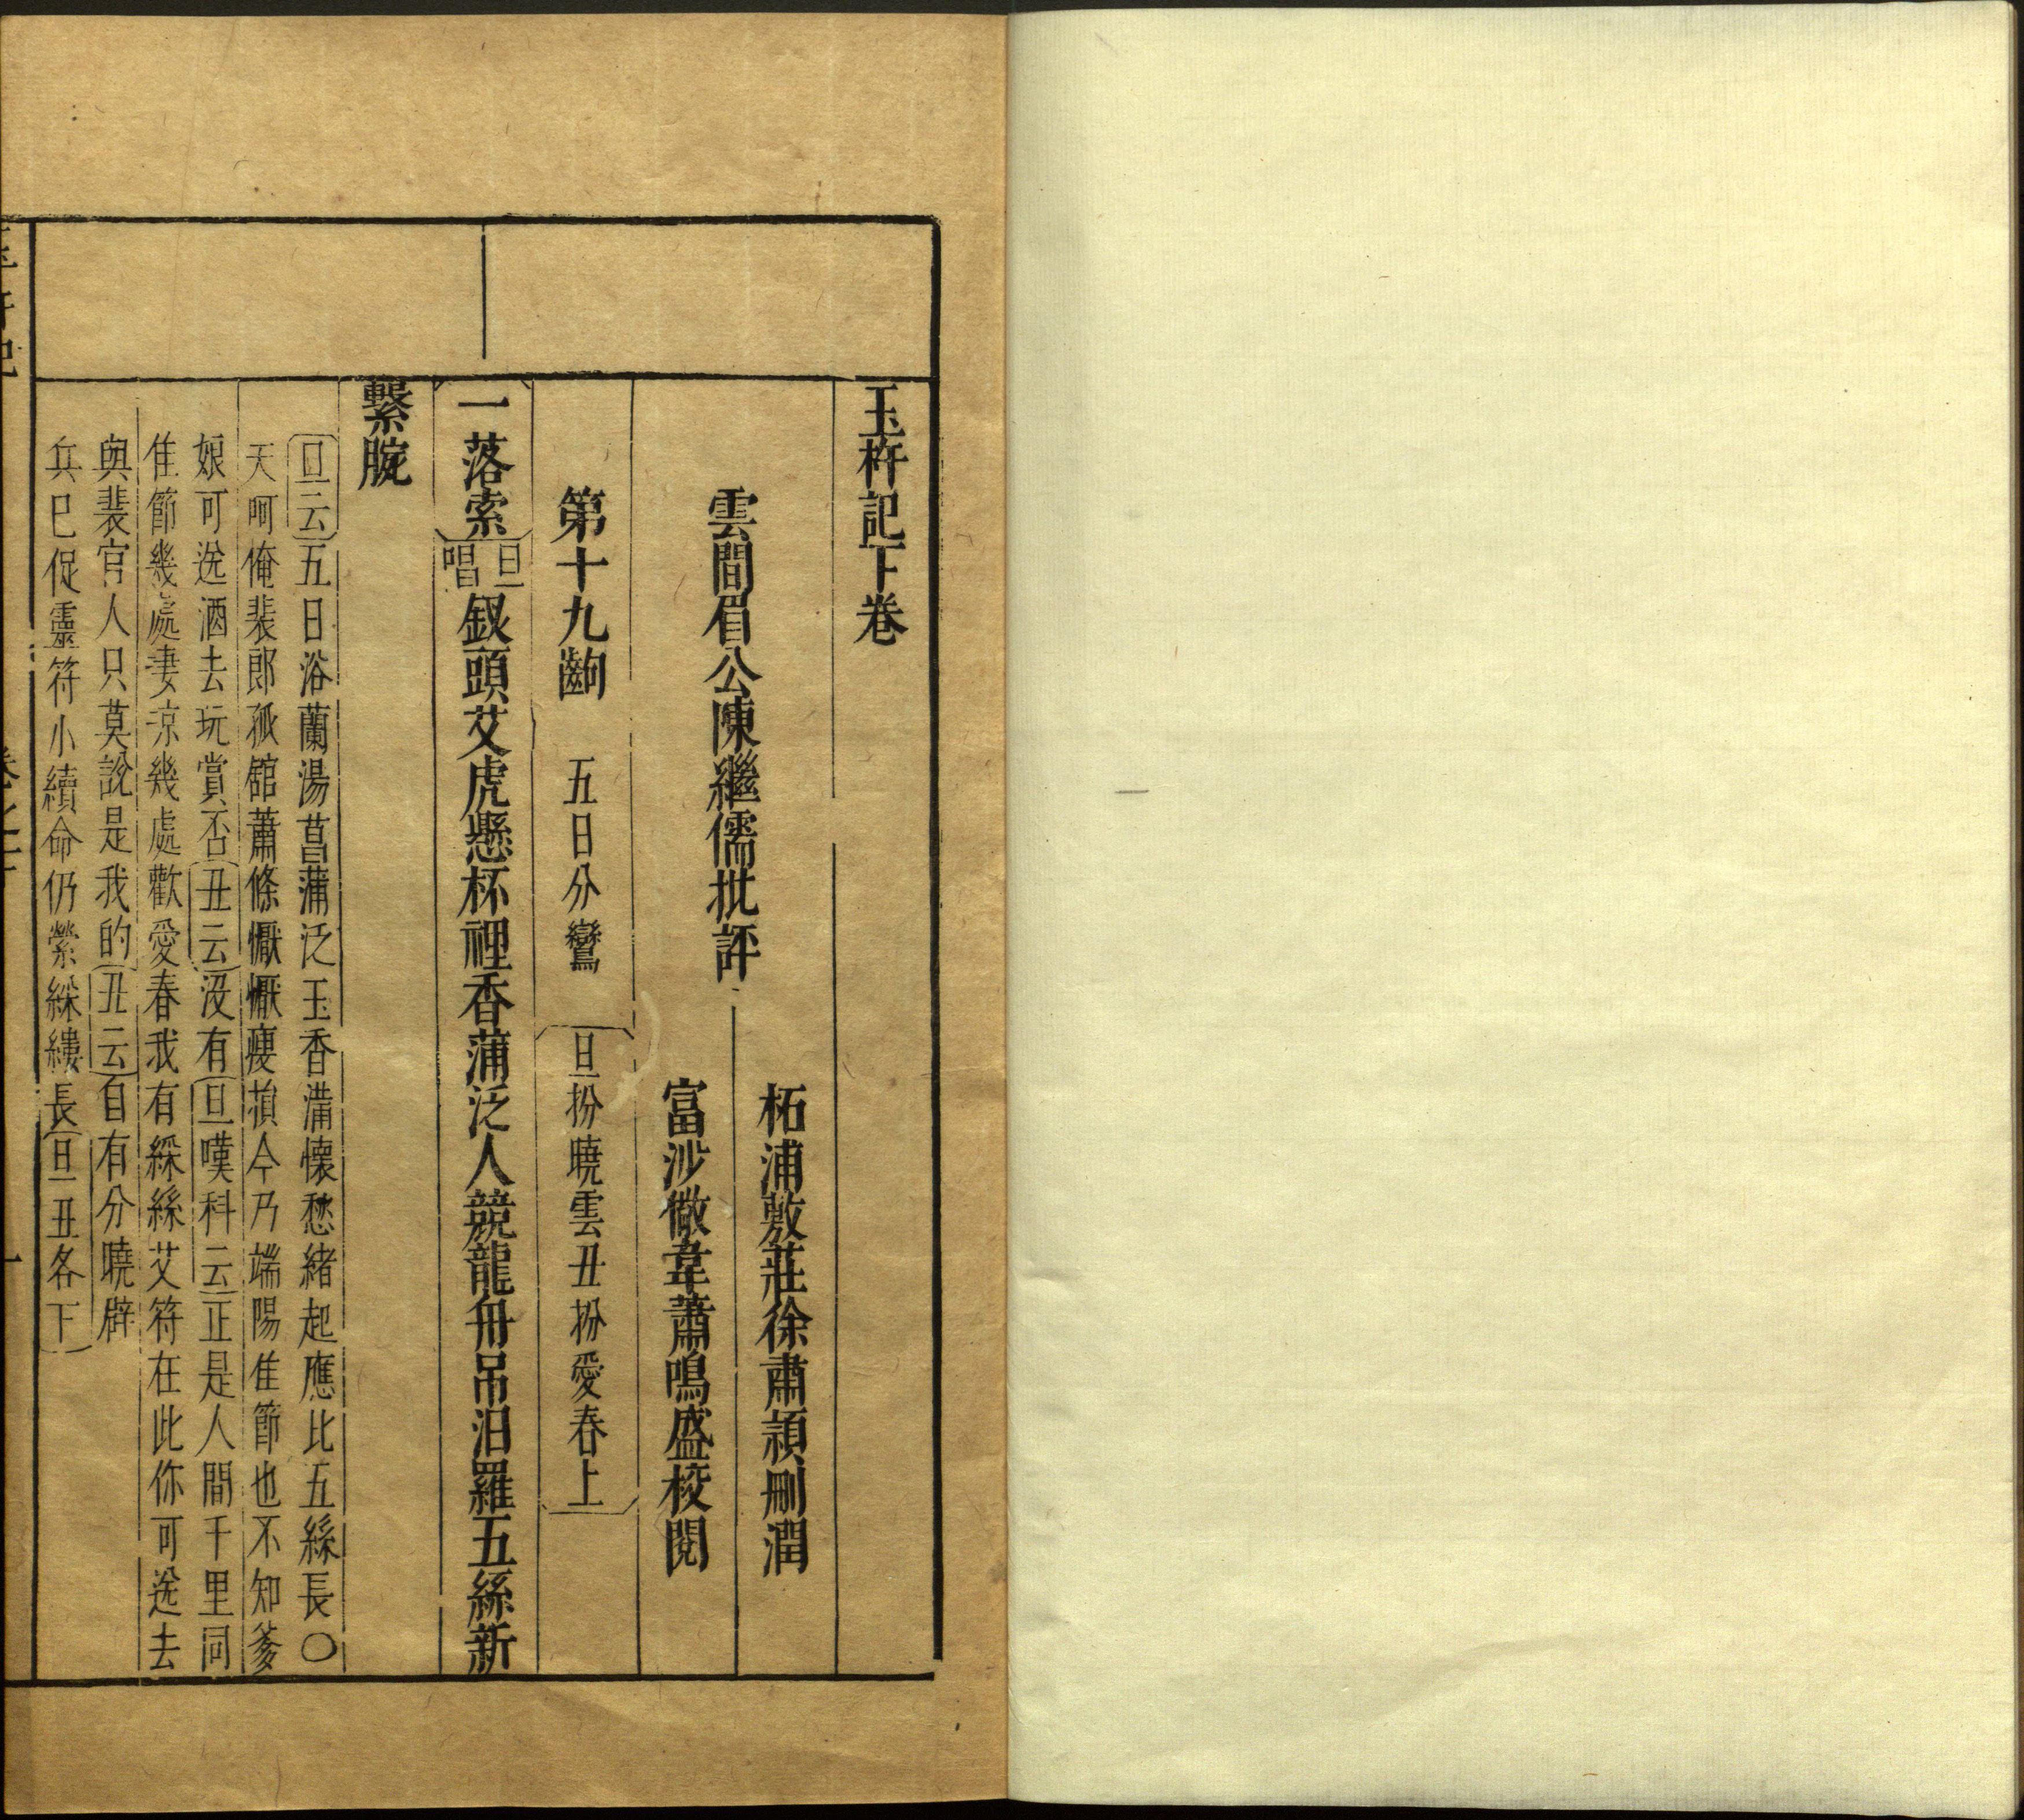 玉杵記下卷
雲間眉公陳繼儒批評
柘浦敷莊徐肅穎刪潤
富沙儆韋蕭鳴盛校閱
第十九齣 五日分鸞 旦扮曉雲丑扮愛春上
一落索 旦唱 釵頭艾虎懸杯裡香蒲泛人競龍舟吊汨羅五絲新
繫腕
旦云五日浴蘭湯菖蒲泛玉香滿懷愁緒起應比五絲長〇
天呵俺裴郎孤舘蕭條懨懨瘦損今乃端陽佳節也不知爹
娘可送酒去玩賞否丑云沒有旦嘆科云正是人間千里同
佳節幾處妻凉幾處歡愛春我有綵絲艾符在此你可送去
與裴官人只莫說是我的丑云自有分曉辟
兵已促靈符小續命仍縈綵縷長旦丑各下